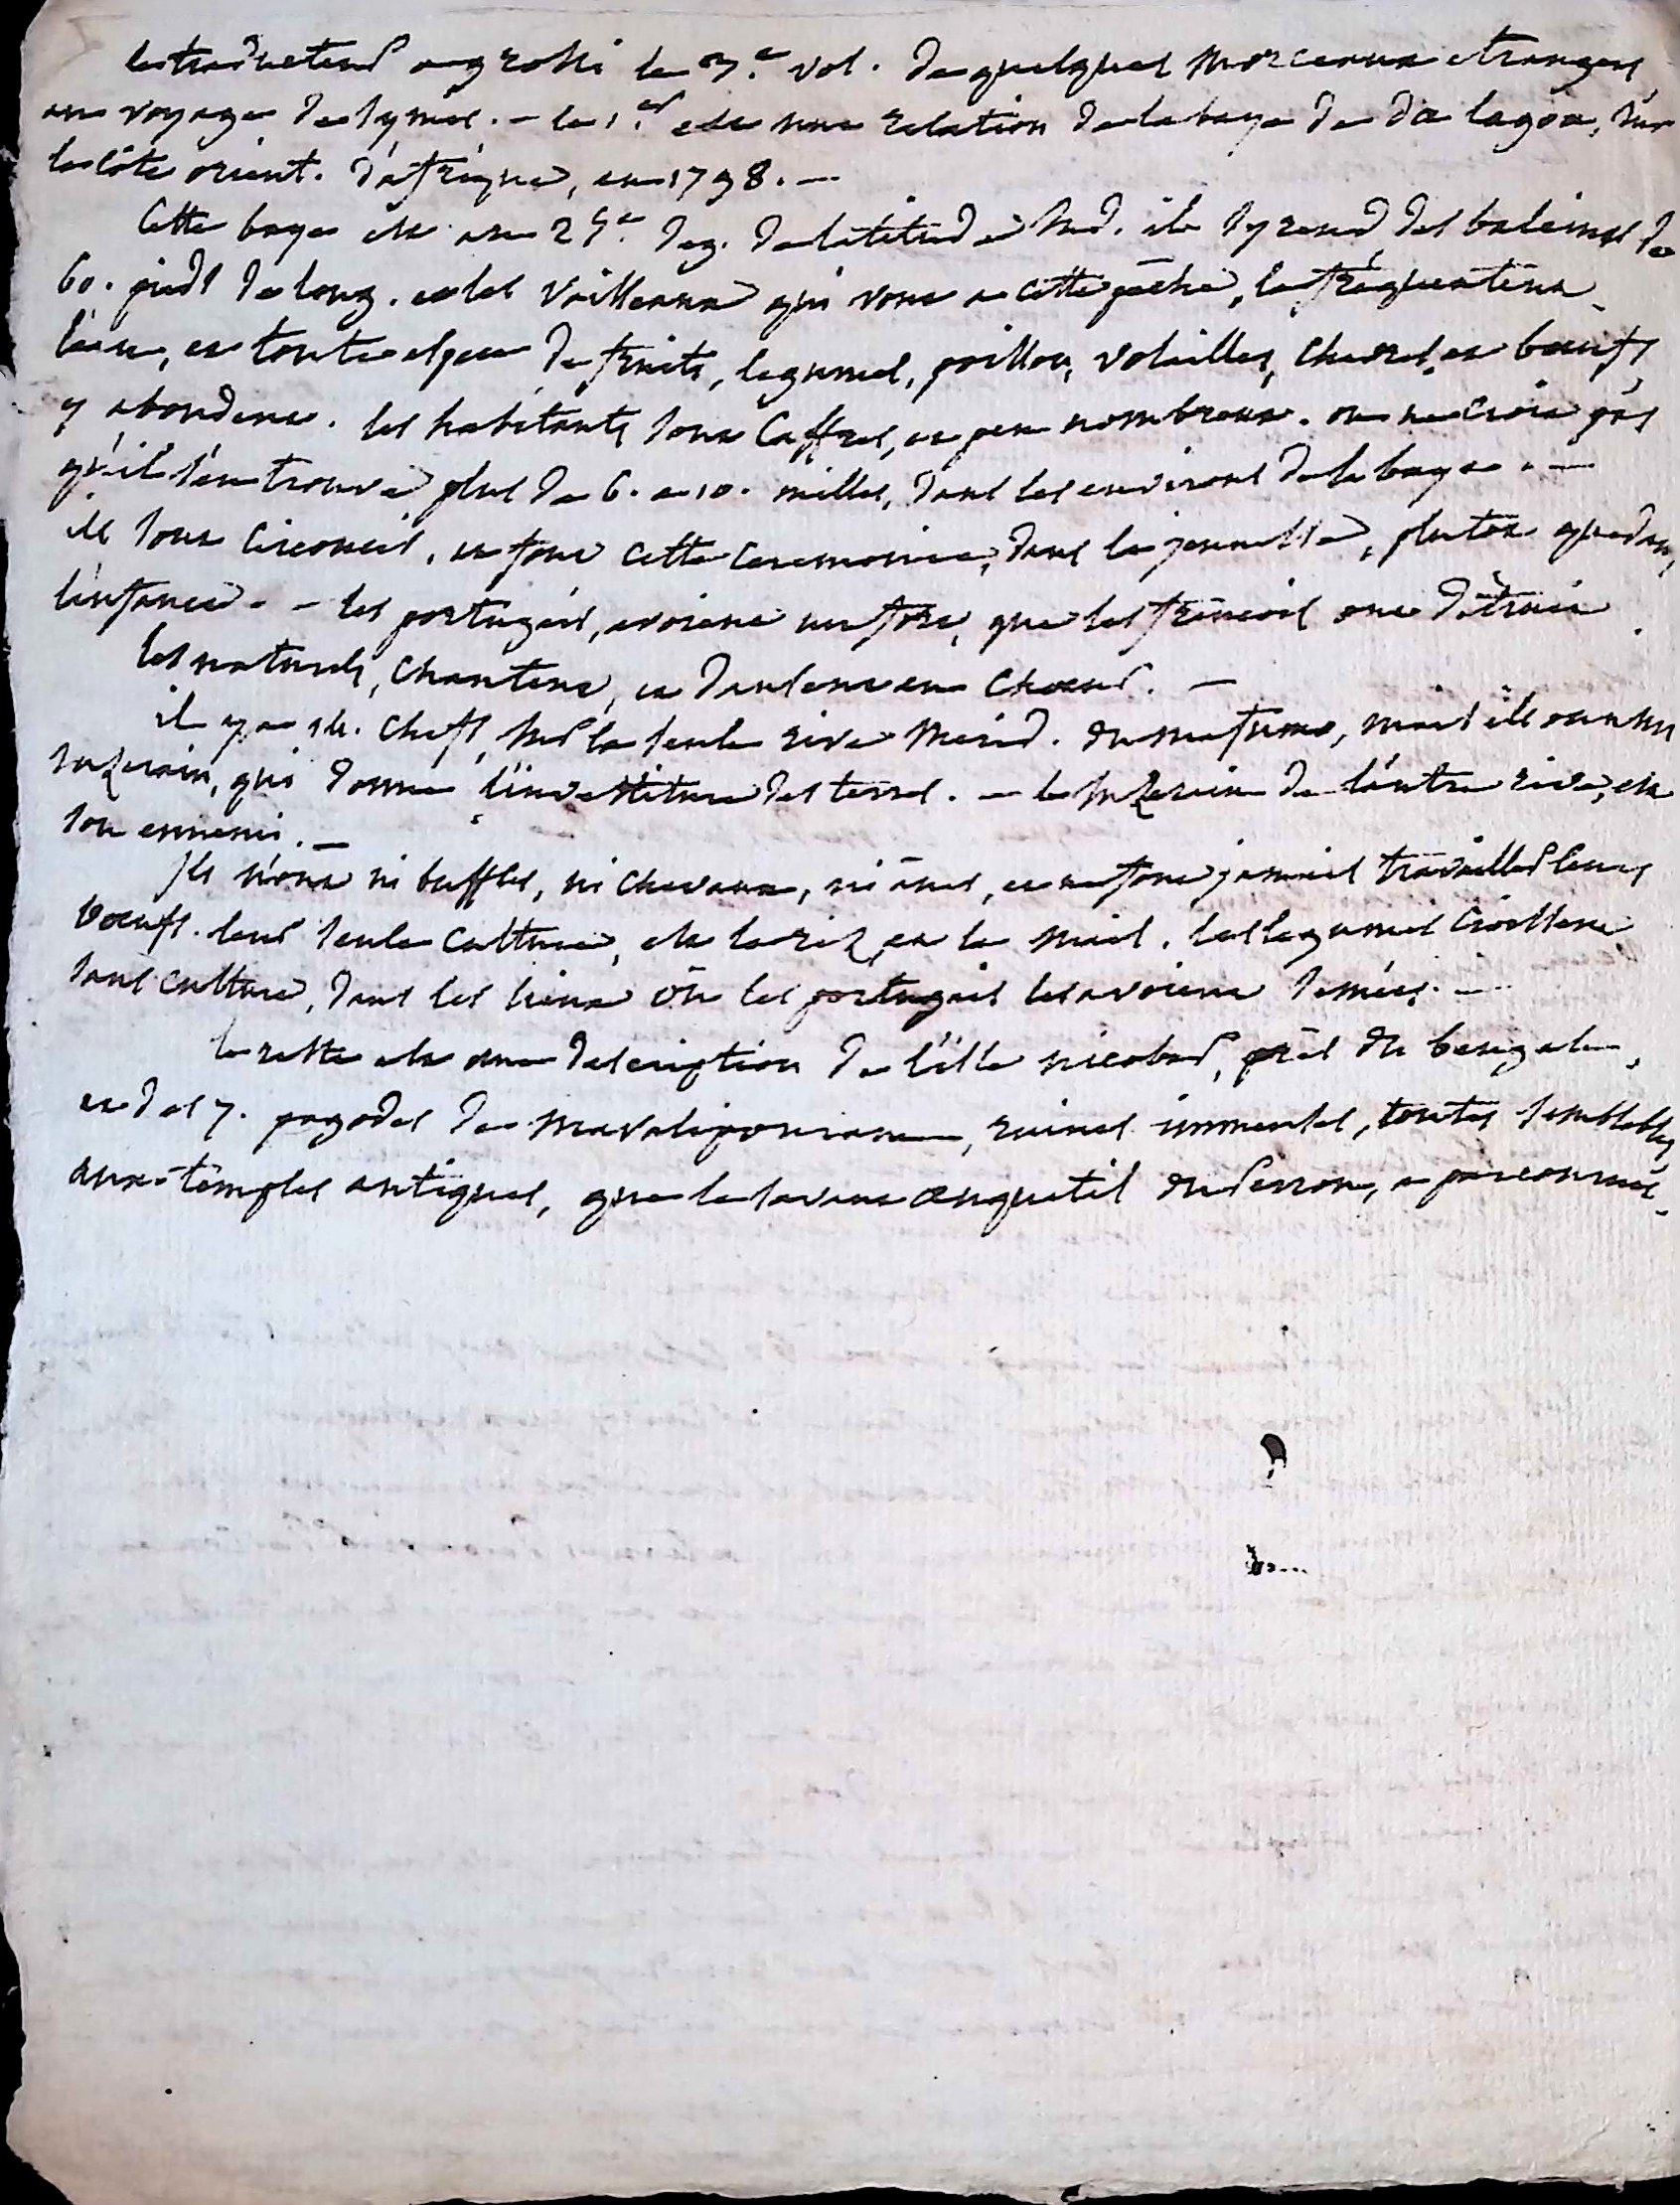 le traducteur a grossi le 3.e vol. de quelques morceaux etrangers
au voyage de Symes. - le 1.er est une relation de la baye de Da lagoa, sur
la côte orient. d'afrique, en 1798. -
Cette baye est au 25.e deg. de latitude Sud. il s'y rend des baleines de
60. pieds de long. et les vaisseaux qui vont a cette pêche, la fréquentent.
l'eau, et toute espece de fruits, legumes, poisson, volailles, chevres, et boeufs
y abondent. les habitants sont Caffres, et peu nombreux. on ne croit pas
qu'il s'en trouve plus de 6. a 10. milles, dans les environs de la baye. -
ils sont circoncis, et font cette ceremonie, dans la jeunesse, plutot que dans
l'enfance. - les portugais, avoient un fort, que les français ont détruit.
les naturels, chantent, et dansent en choeur. -
il y a 14. chefs, sur la seule rive merid. du mafumo, mais ils ont un
suzerain, qui donne l'investiture des terres. - le suzerain de l'autre rive, est
son ennemi. -
Ils n'ont ni buffles, ni chevaux, ni ânes, et ne font jamais travailler leurs
boeufs. leur seule culture, est le riz, et le maïs. les legumes croissent
sans culture, dans les lieux où les portugais les avoient semés. -
le reste est une description de l'isle nicobar, près du bengale,
et des 7. pagodes de mavalipouram, ruines immenses, toutes semblables
aux temples antiques, que le savant anquetil du Perron, a parcourus.